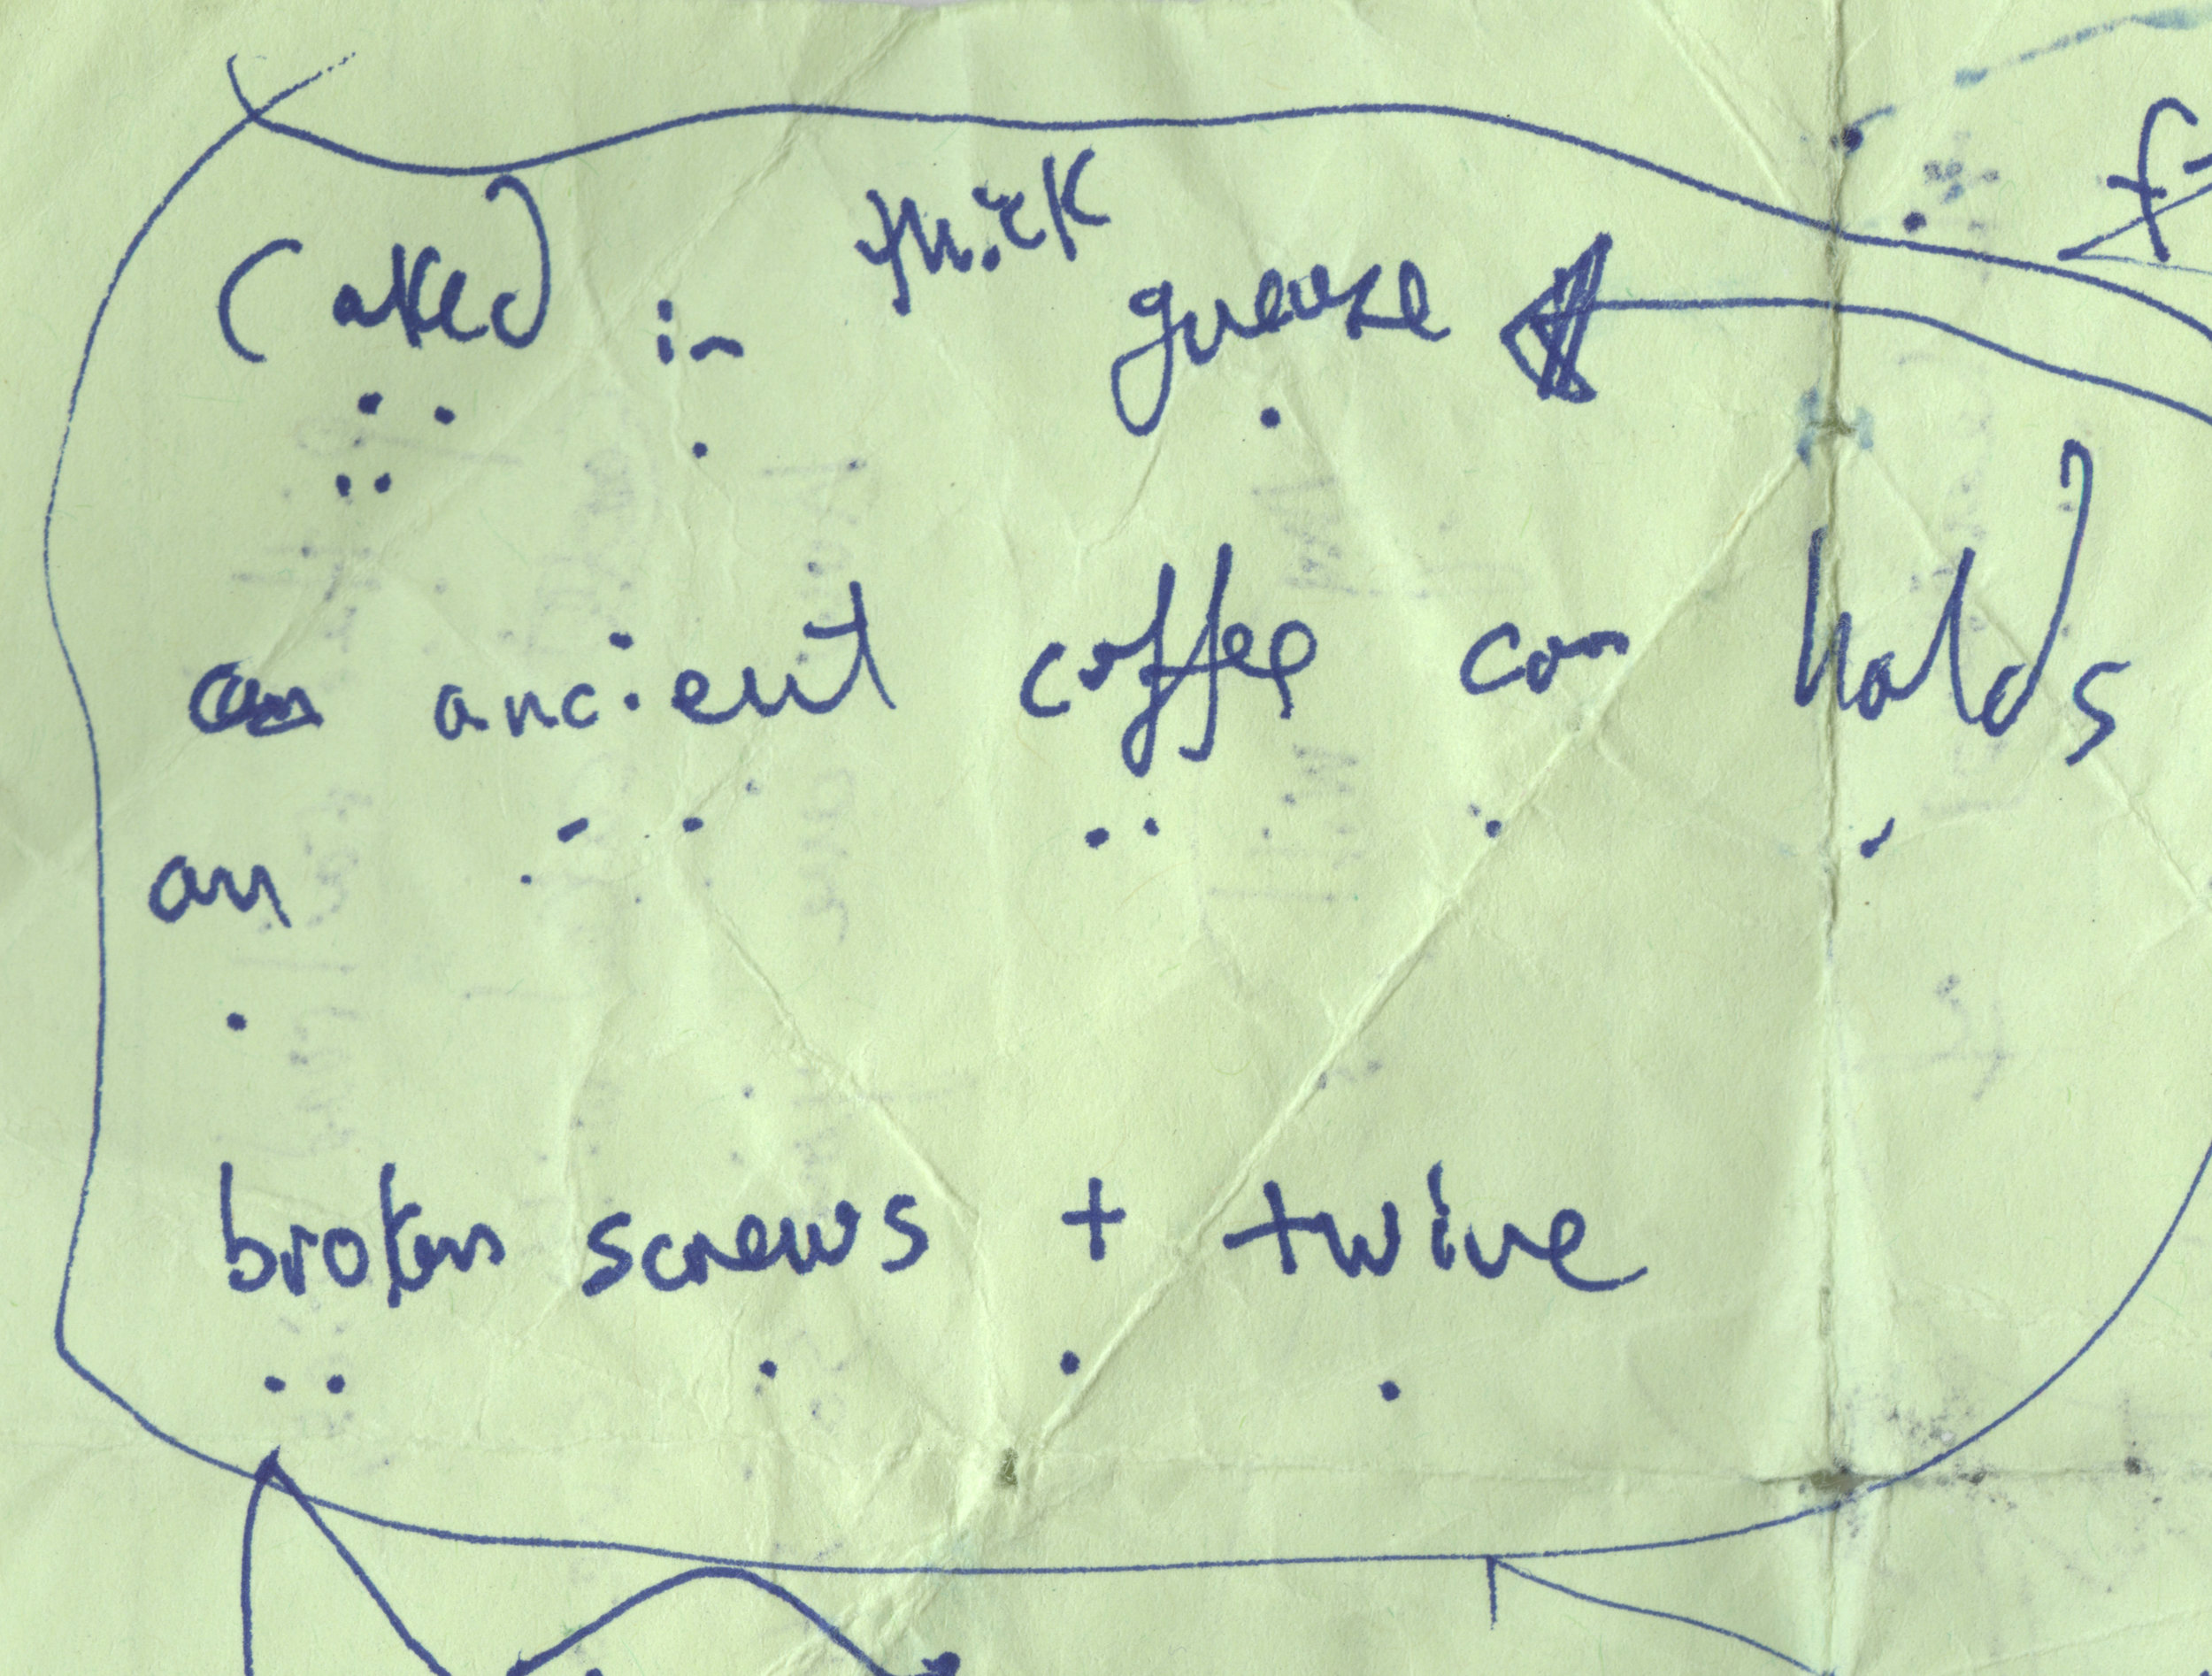 Caked in thick grease
an ancient coffee can holds
an
broken screws + twine